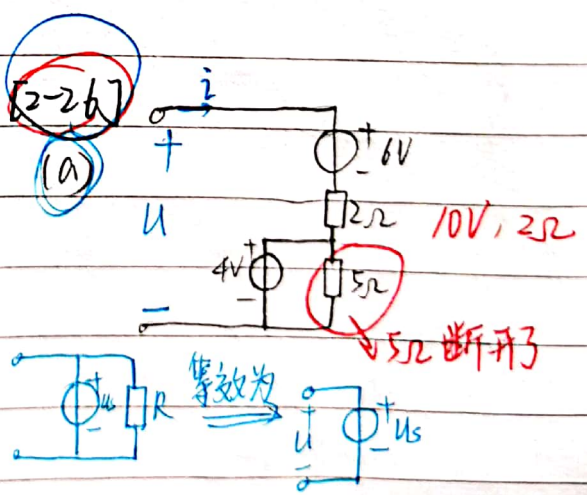 [2-26]
(a)
i
+
u
-
+
-
6V
2Ω
10V, 2Ω
4V
+
-
5Ω
5Ω断开了
us
+
-
R
等效为
+
u
-
+
-
us